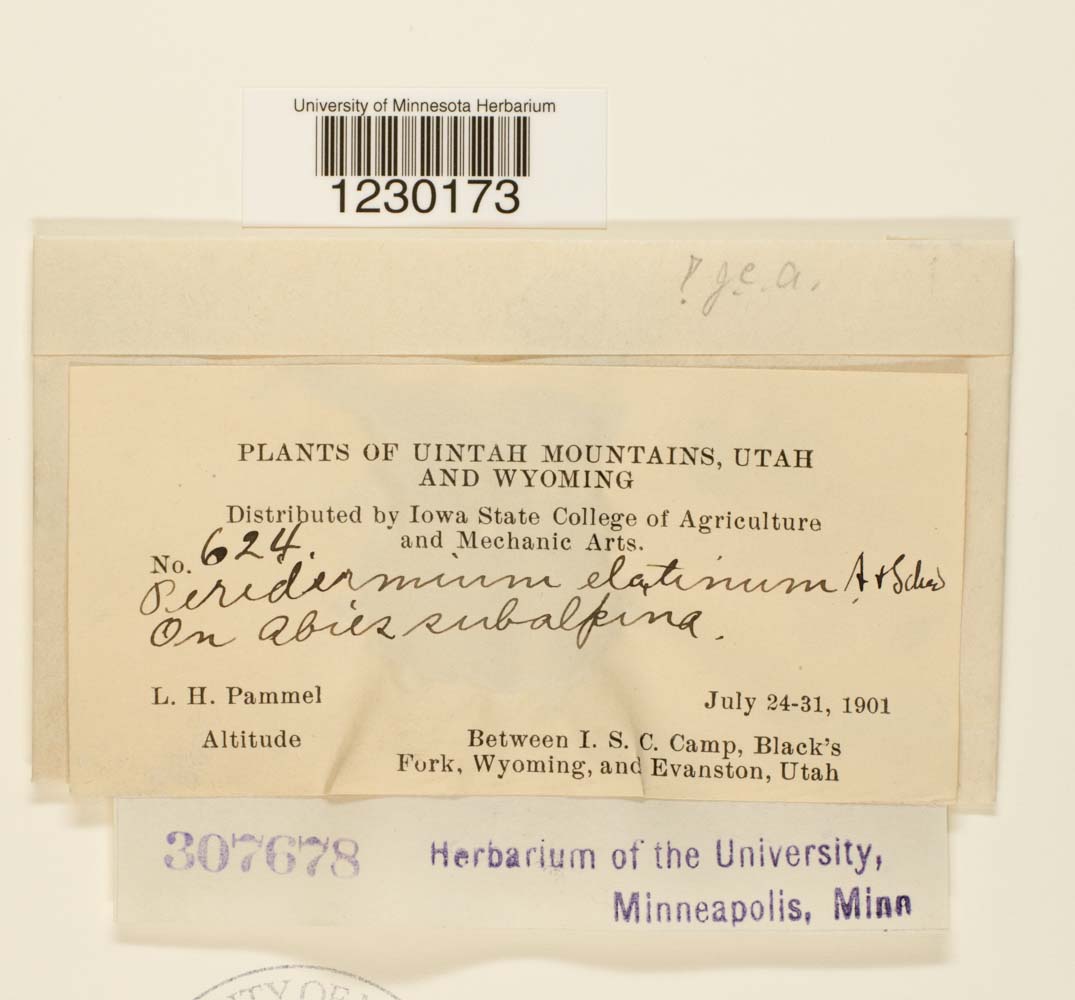 University of Minnesota Herbarium
1230173
PLANTS OF UINTAH MOUNTAINS, UTAH
AND WYOMING
Distributed by Iowa State College of Agriculture
and Mechanic Arts.
No. 624.
Peridermium elatinum A & Schw
On Abies subalpina.
L. H. Pammel
July 24-31, 1901
Altitude
Between I. S. C. Camp, Black's
Fork, Wyoming, and Evanston, Utah
307678
Herbarium of the University,
Minneapolis, Minn